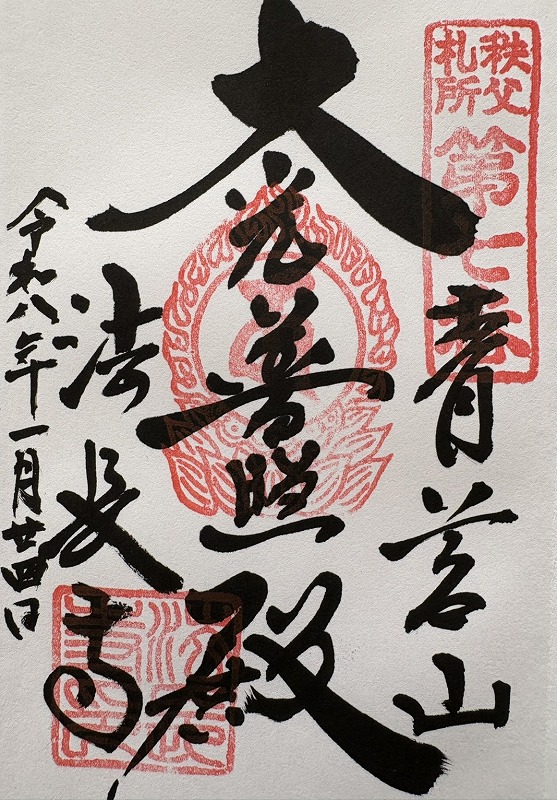 秩父
札所
第七番
青苔山
大光普照殿
法長寺
令和八年一月廿四日